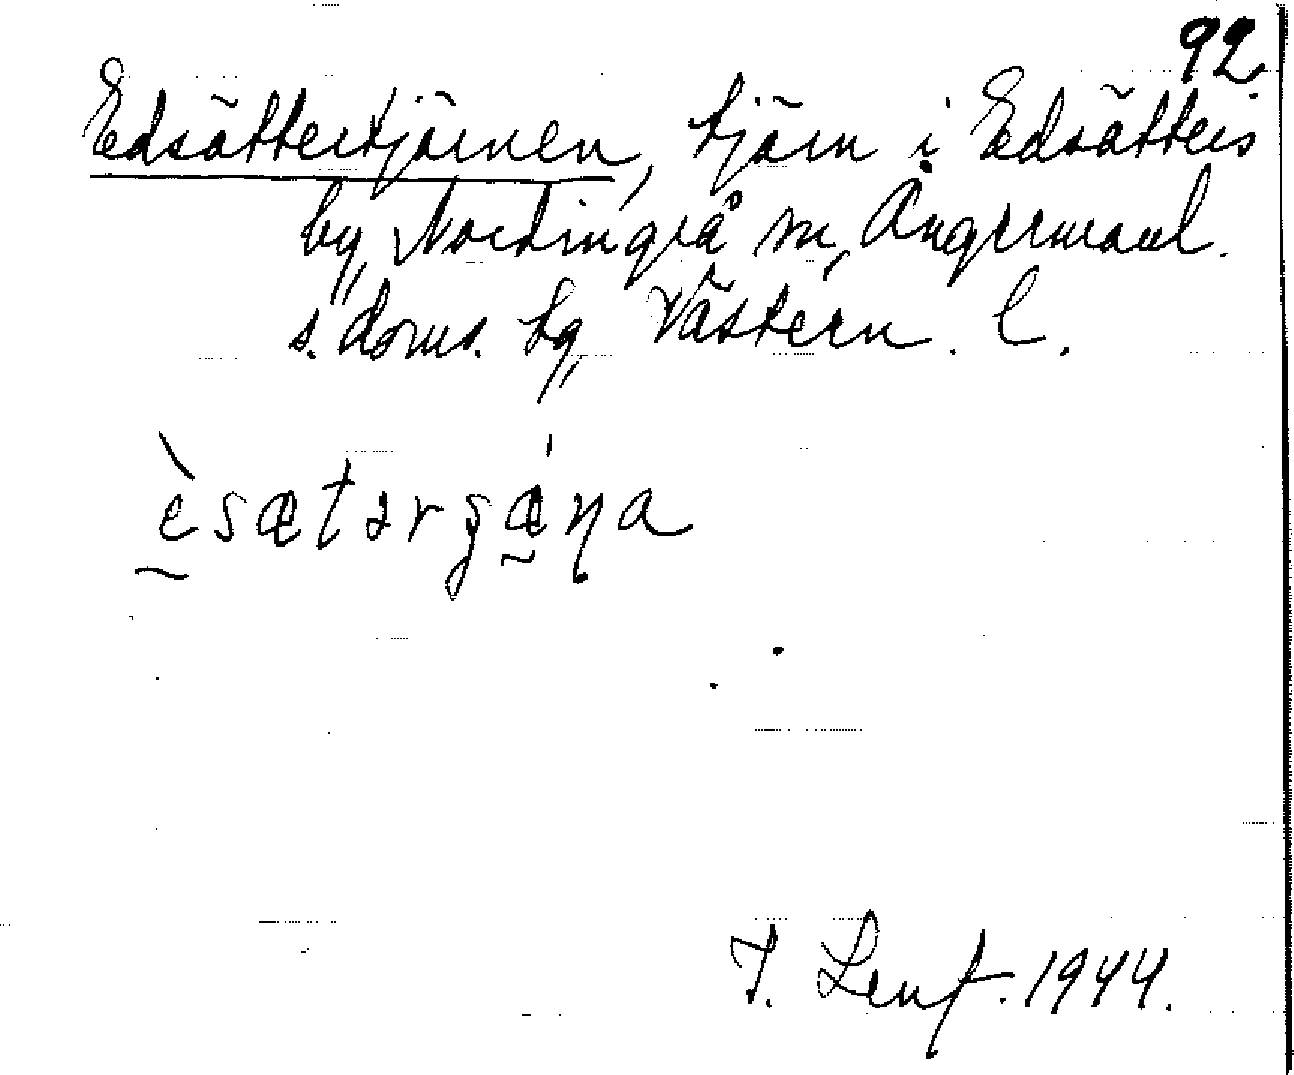 92.
Edsättertjärnen, tjärn i Edsätters
by, Nordingrå sn, Ångermanl.
s. doms. lg, Västern. l.
èsætərʒæ̀ɳa
T. Lenf. 1944.